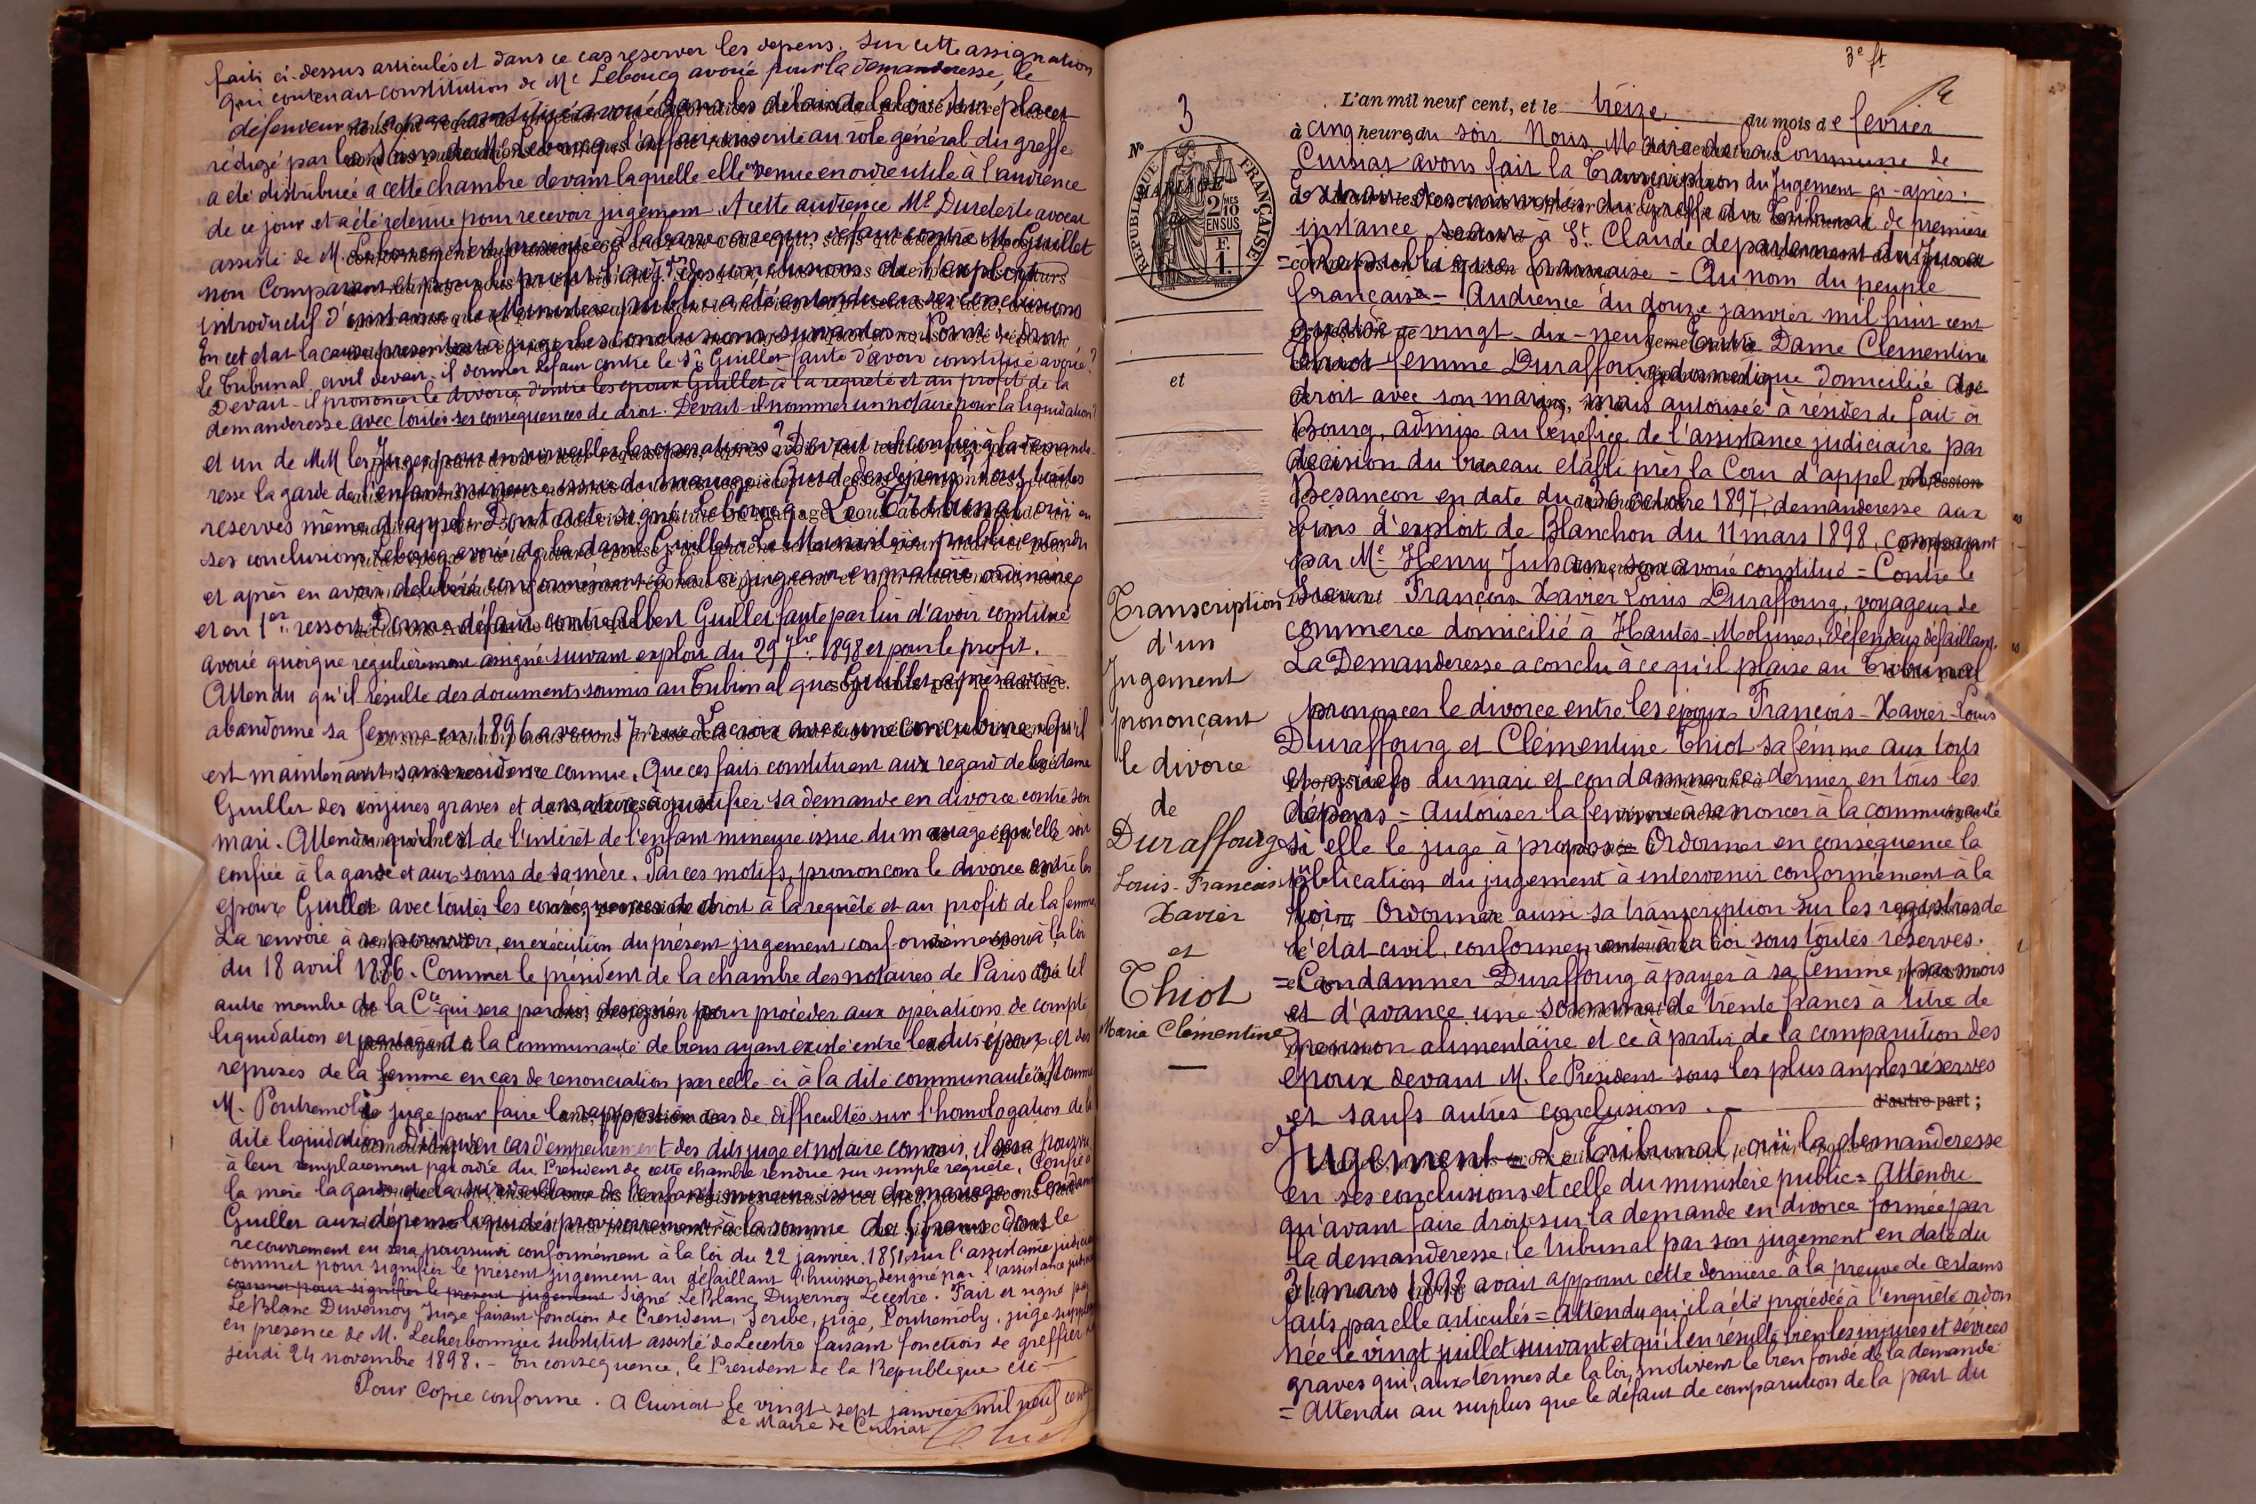 faits ci-dessus articulés et dans ce cas réserver les dépens. Sur cette assignation
qui contenait constitution de Me Leboucq avoué pour la demanderesse, le
défendeur n'a pas constitué avoué dans les délais de la loi. Sur placet
rédigé par les soins de Me Leboucq l'affaire inscrite au rôle général du greffe
a été distribuée à cette chambre devant laquelle elle est venue en ordre utile à l'audience
de ce jour et a été retenue pour recevoir jugement. A cette audience Me Durdesle avocat
assisté de M. Leboucq s'est présenté à la barre a requis défaut contre M. Guillet
non Comparant et pour le profit l'adjon des conclusions de l'exploit
introductif d'instance, le Ministère public a été entendu en ses conclusions
En cet état la cause présentait à juger les conclusions suivantes = Point de Droit
Le Tribunal avil devait-il donner défaut contre le Sr Guillet faute d'avoir constitué avoué?
Devait-il prononcer le divorce d'entre les époux Guillet à la requête et au profit de la
demanderesse avec toutes ses conséquences de droit. Devait-il nommer un notaire pour la liquidation?
et un de MM les Juges pour en surveiller les opérations? Devait-il confier à la demande-
resse la garde de l'enfant mineure issue du mariage. Quid des dépens, tous droits
réservés même d'appel. Dont acte signé Leboucq. Le Tribunal ouï en
ses conclusions Leboucq avoué de la dame Guillet - Le Ministère public entendu
et après en avoir délibéré conformément à la loi jugeant en matière ordinaire
et en 1er ressort Donne défaut contre Albert Guillet faute par lui d'avoir constitué
avoué quoique régulièrement assigné suivant exploit du 29 7bre 1898 et pour le profit.
Attendu qu'il résulte des documents soumis au Tribunal que Guillet après avoir
abandonné sa femme en 1896 a vécu 17 rue Lacroix avec une concubine, qu'il
est maintenant sans résidence connue. Que ces faits constituent aux regard de la dame
Guillet des injures graves et de nature à justifier sa demande en divorce contre son
mari. Attendu qu'il est de l'intérêt de l'enfant mineure issue du mariage qu'elle soit
confiée à la garde et aux soins de sa mère. Par ces motifs, prononçons le divorce entre les
époux Guillet avec toutes les conséquences de droit à la requête et au profit de la femme
La renvoie à se pourvoir, en exécution du présent jugement conformément à la loi
du 18 avril 1886. Commet le président de la chambre des notaires de Paris ou tel
autre membre de la Cie qui sera par lui désigné pour procéder aux opérations de compte
liquidation et partage de la Communauté de biens ayant existé entre les dits époux et des
reprises de la femme en cas de renonciation par celle-ci à la dite communauté. Nomme
M. Pontremoli juge pour faire le rapport en cas de difficultés sur l'homologation de la
dite liquidation. Dit qu'en cas d'empêchement des dits juge et notaire commis, il sera pourvu
à leur remplacement par ordce du Président de cette chambre rendue sur simple requête. Confie à
la mère la garde et la surveillance de l'enfant mineure issue du mariage. Condamne
Guillet aux dépens liquidés provisoirement à la somme de francs dont le
recouvrement en sera poursuivi conformément à la loi du 22 janvier 1851, sur l'assistance judiciaire
commet pour signifier le présent jugement au défaillant l'huissier désigné par l'assistance judiciaire
commet pour signifier le présent jugement Signé : Le Blanc Duvernoy Lecestre. Fait et signé par
Le Blanc Duvernoy Juge faisant fonction de Président, Scribe, juge, Pontremoly, juge suppléant
en présence de M. Lecherbonnier substitut assisté de Lecestre faisant fonction de greffier le
jeudi 24 novembre 1898. - En conséquence, le Président de la République etc -
Pour Copie conforme. A Cuisiat le vingt sept janvier mil neuf cent
Le Maire de Cuisiat
3e ft
3
No
MARIAGE
RÉPUBLIQUE FRANÇAISE
2/10 MES EN SUS
1 F.
et
Transcription
d'un
Jugement
prononçant
le divorce
de
Duraffourg
Louis-François
Xavier
et
Thiot
Marie Clémentine
L'an mil neuf cent, et le treize du mois de février
à cinq heures du soir Nous, Maire de la Commune de
Cuisiat avons fait la Transcription du Jugement ci-après.
Extrait des minutes du Greffe du Tribunal de première
instance séant à St Claude département du Jura
= République française = Au nom du peuple
français = Audience du douze janvier mil huit cent
quatre-vingt-dix-neuf = Entre Dame Clémentine
Thiot femme Duraffourg, domestique domiciliée de
droit avec son mari, mais autorisée à résider de fait à
Bourg, admise au bénéfice de l'assistance judiciaire par
décision du bureau établi près la Cour d'appel de
Besançon en date du 30 octobre 1897, demanderesse aux
fins d'exploit de Blanchon du 11 mars 1898, comparant
par Me Henry Juhan, son avoué constitué = Contre le
Sieur François-Xavier Louis Duraffourg, voyageur de
commerce domicilié à Hautes-Molunes, défendeur défaillant.
La Demanderesse a conclu à ce qu'il plaise au Tribunal
prononcer le divorce entre les époux François-Xavier-Louis
Duraffourg et Clémentine Thiot sa femme aux torts
et griefs du mari et condamner ce dernier en tous les
dépens = Autoriser la femme à renoncer à la communauté
si elle le juge à propos = Ordonner en conséquence la
publication du jugement à intervenir conformément à la
loi = Ordonner aussi sa transcription sur les registres de
l'état civil, conformément à la loi sous toutes réserves.
= Condamner Duraffourg à payer à sa femme par mois
et d'avance une somme de trente francs à titre de
pension alimentaire et ce à partir de la comparution des
époux devant M. le Président sous les plus amples réserves
et saufs autres conclusions. - d'autre part ;
Jugement = Le Tribunal, ouï la demanderesse
en ses conclusions et celle du ministère public = Attendu
qu'avant faire droit sur la demande en divorce formée par
la demanderesse, le tribunal par son jugement en date du
31 mars 1898 avait appointé cette dernière à la preuve de certains
faits par elle articulés = Attendu qu'il a été procédé à l'enquête ordon
née le vingt juillet suivant et qu'il en résulte bien les injures et sévices
graves qui, aux termes de la loi, motivent le bien fondé de la demande
= Attendu au surplus que le défaut de comparution de la part du